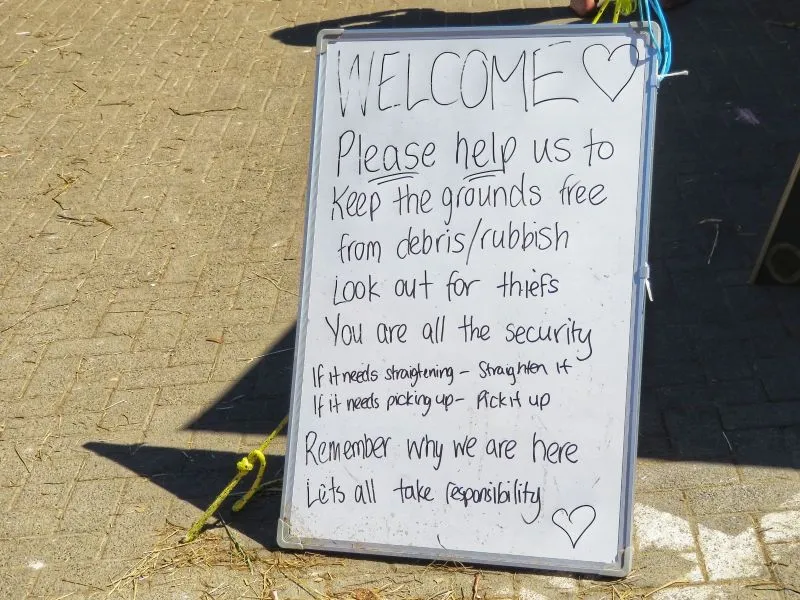 WELCOME
Please help us to
Keep the grounds free
from debris/rubbish
Look out for thiefs
You are all the security
If it needs straigtening - Straighten it
If it needs picking up - Pick it up
Remember why we are here
Lets all take responsibility